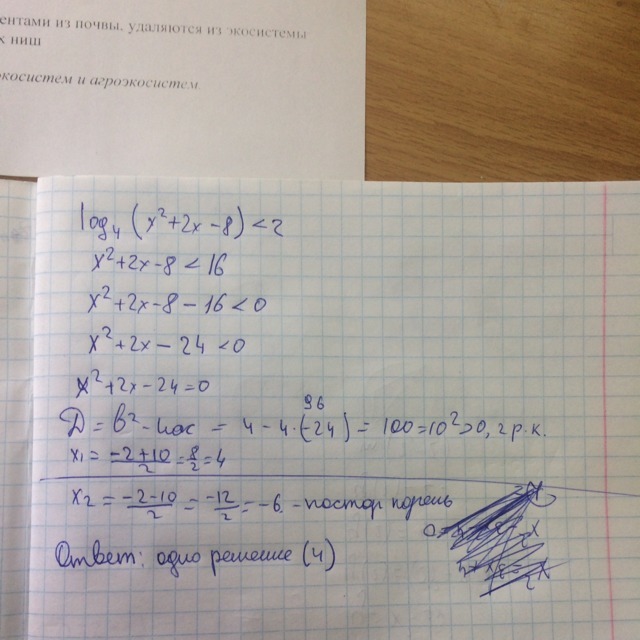 ентами из почвы, удаляются из экосистемы
х ниш
экосистем и агроэкосистем.
log₄ (x²+2x-8) < 2
x²+2x-8 < 16
x²+2x-8-16 < 0
x²+2x-24 < 0
x²+2x-24=0
96
Д = b²-4ac = 4-4·(-24) = 100=10²>0, 2 р.к.
x₁ = -2+10/2 = 8/2 = 4
x₂ = -2-10/2 = -12/2 = -6. - постор корень
Ответ: одно решение (4)